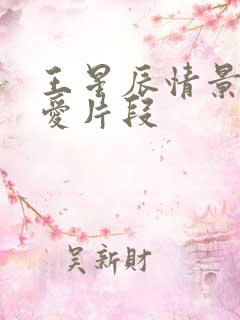 王星辰情景
愛片段
吴新財